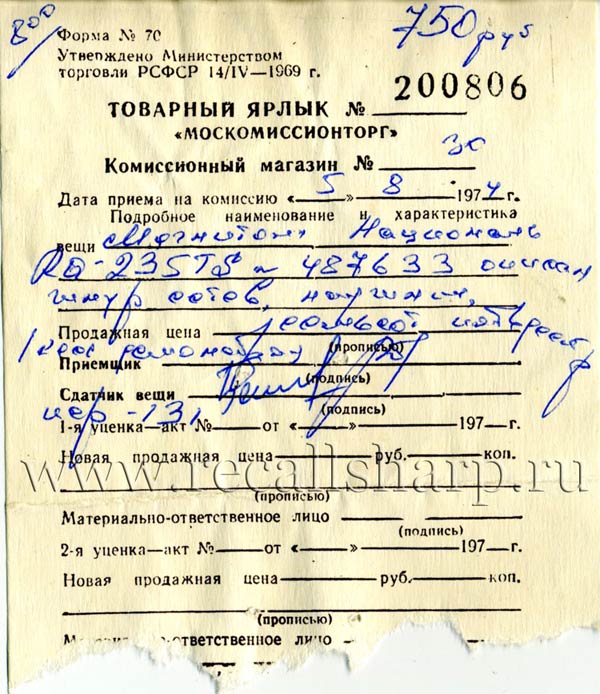 800
750 руб
Форма № 70
Утверждено Министерством
торговли РСФСР 14/IV—1969 г.
ТОВАРНЫЙ ЯРЛЫК № 200806
«МОСКОМИССИОНТОРГ»
Комиссионный магазин № 30
Дата приема на комиссию «5» 8 1974 г.
Подробное наименование и характеристика
вещи Магнитон Националь
RQ-235TS № 487633
шнур сетев, наушник,
Продажная цена семьсот пятьдесят р
(прописью)
Приемщик
(подпись)
Сдатчик вещи
(подпись)
1-я уценка—акт № — от « — » 197 г.
Новая продажная цена руб. коп.
www.recallsharp.ru
(прописью)
Материально-ответственное лицо
(подпись)
2-я уценка—акт № — от « — » 197 г.
Новая продажная цена руб. коп.
(прописью)
Материально-ответственное лицо